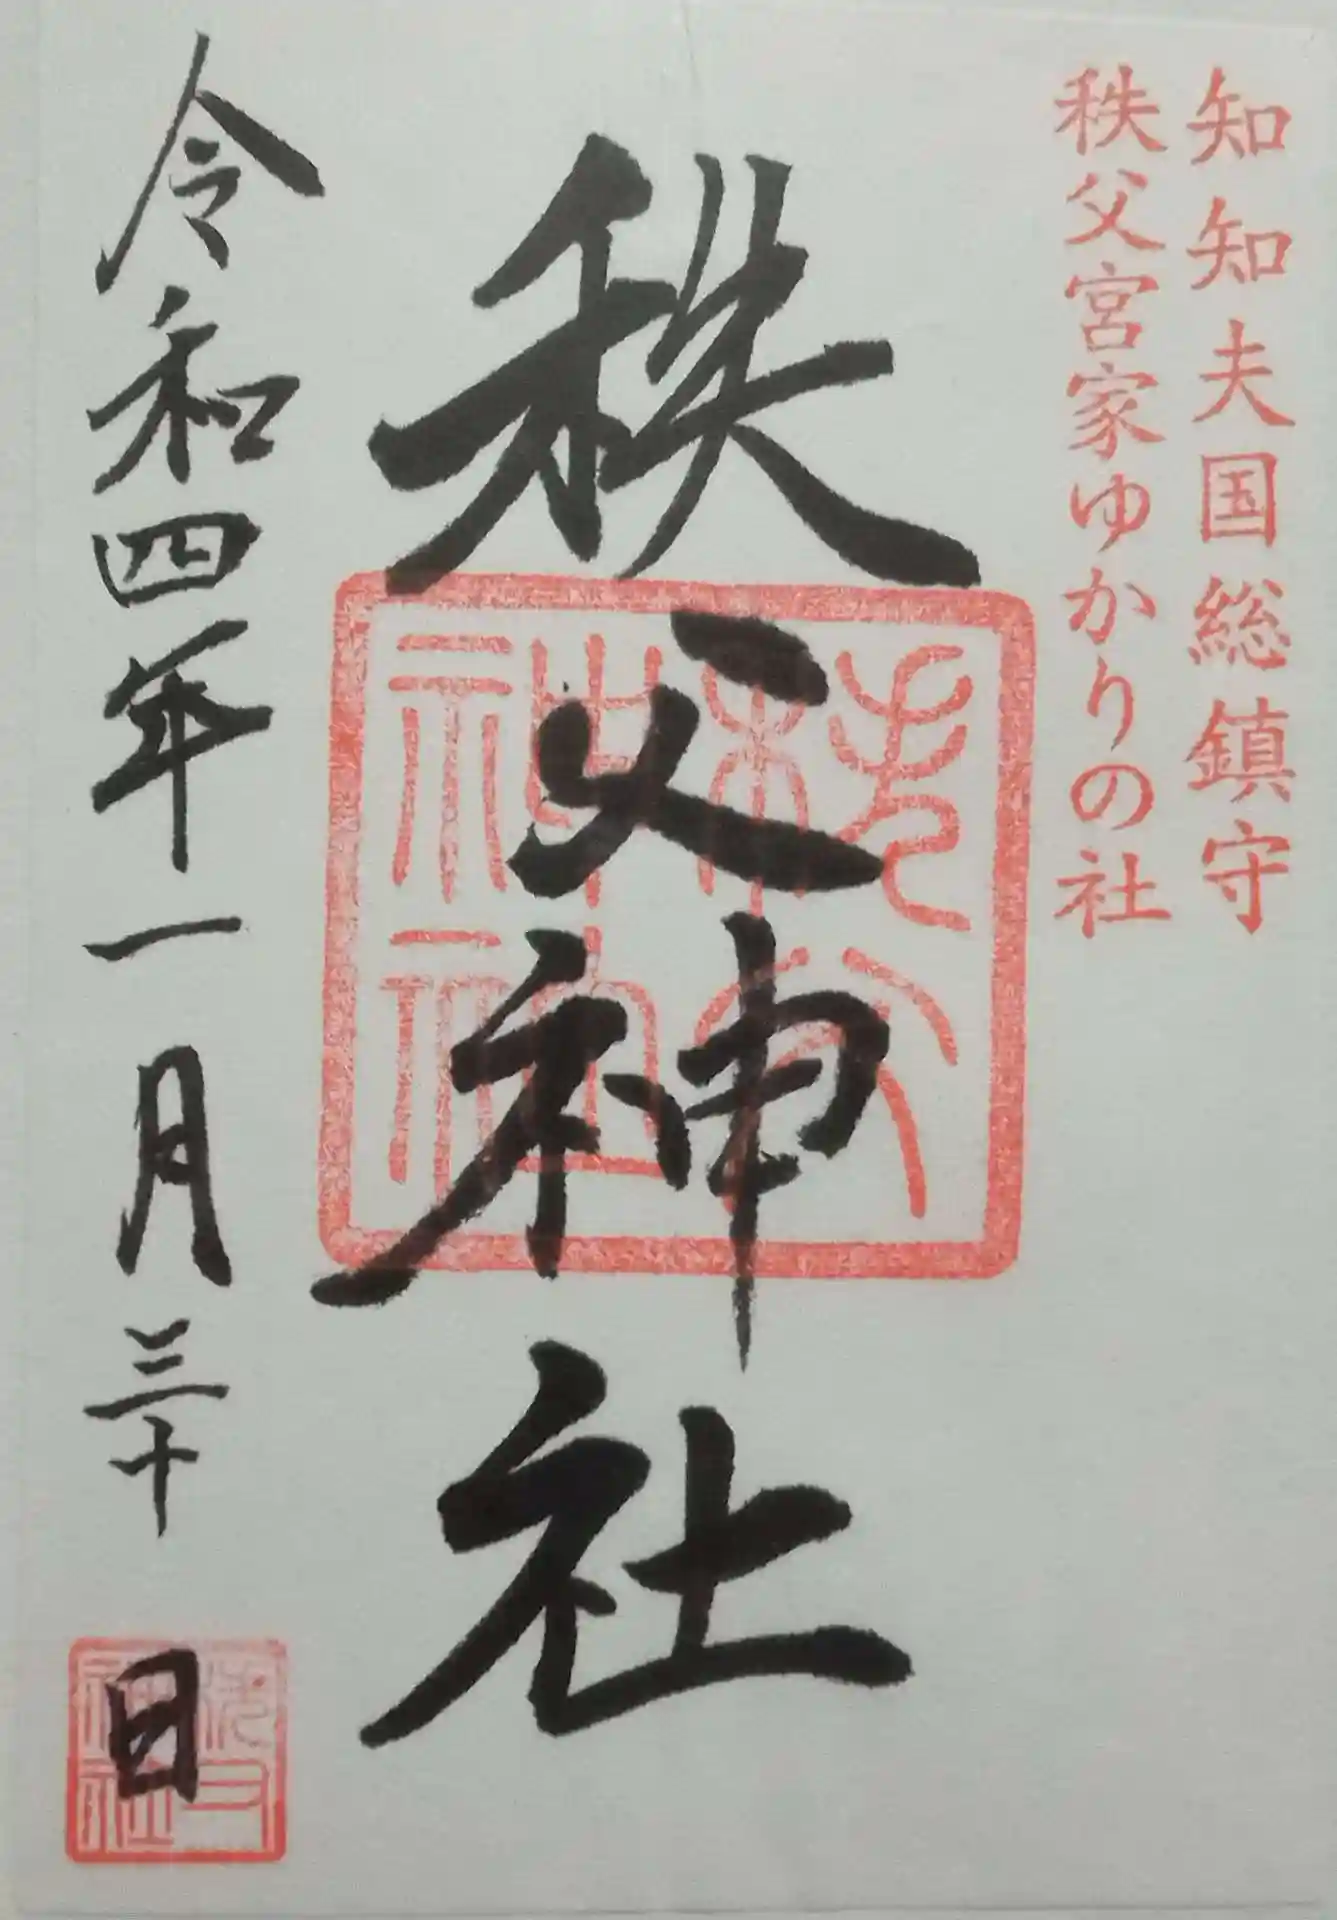 知知夫国総鎮守
秩父宮家ゆかりの社
秩父神社
秩父神社
令和四年一月三十日
秩父神社